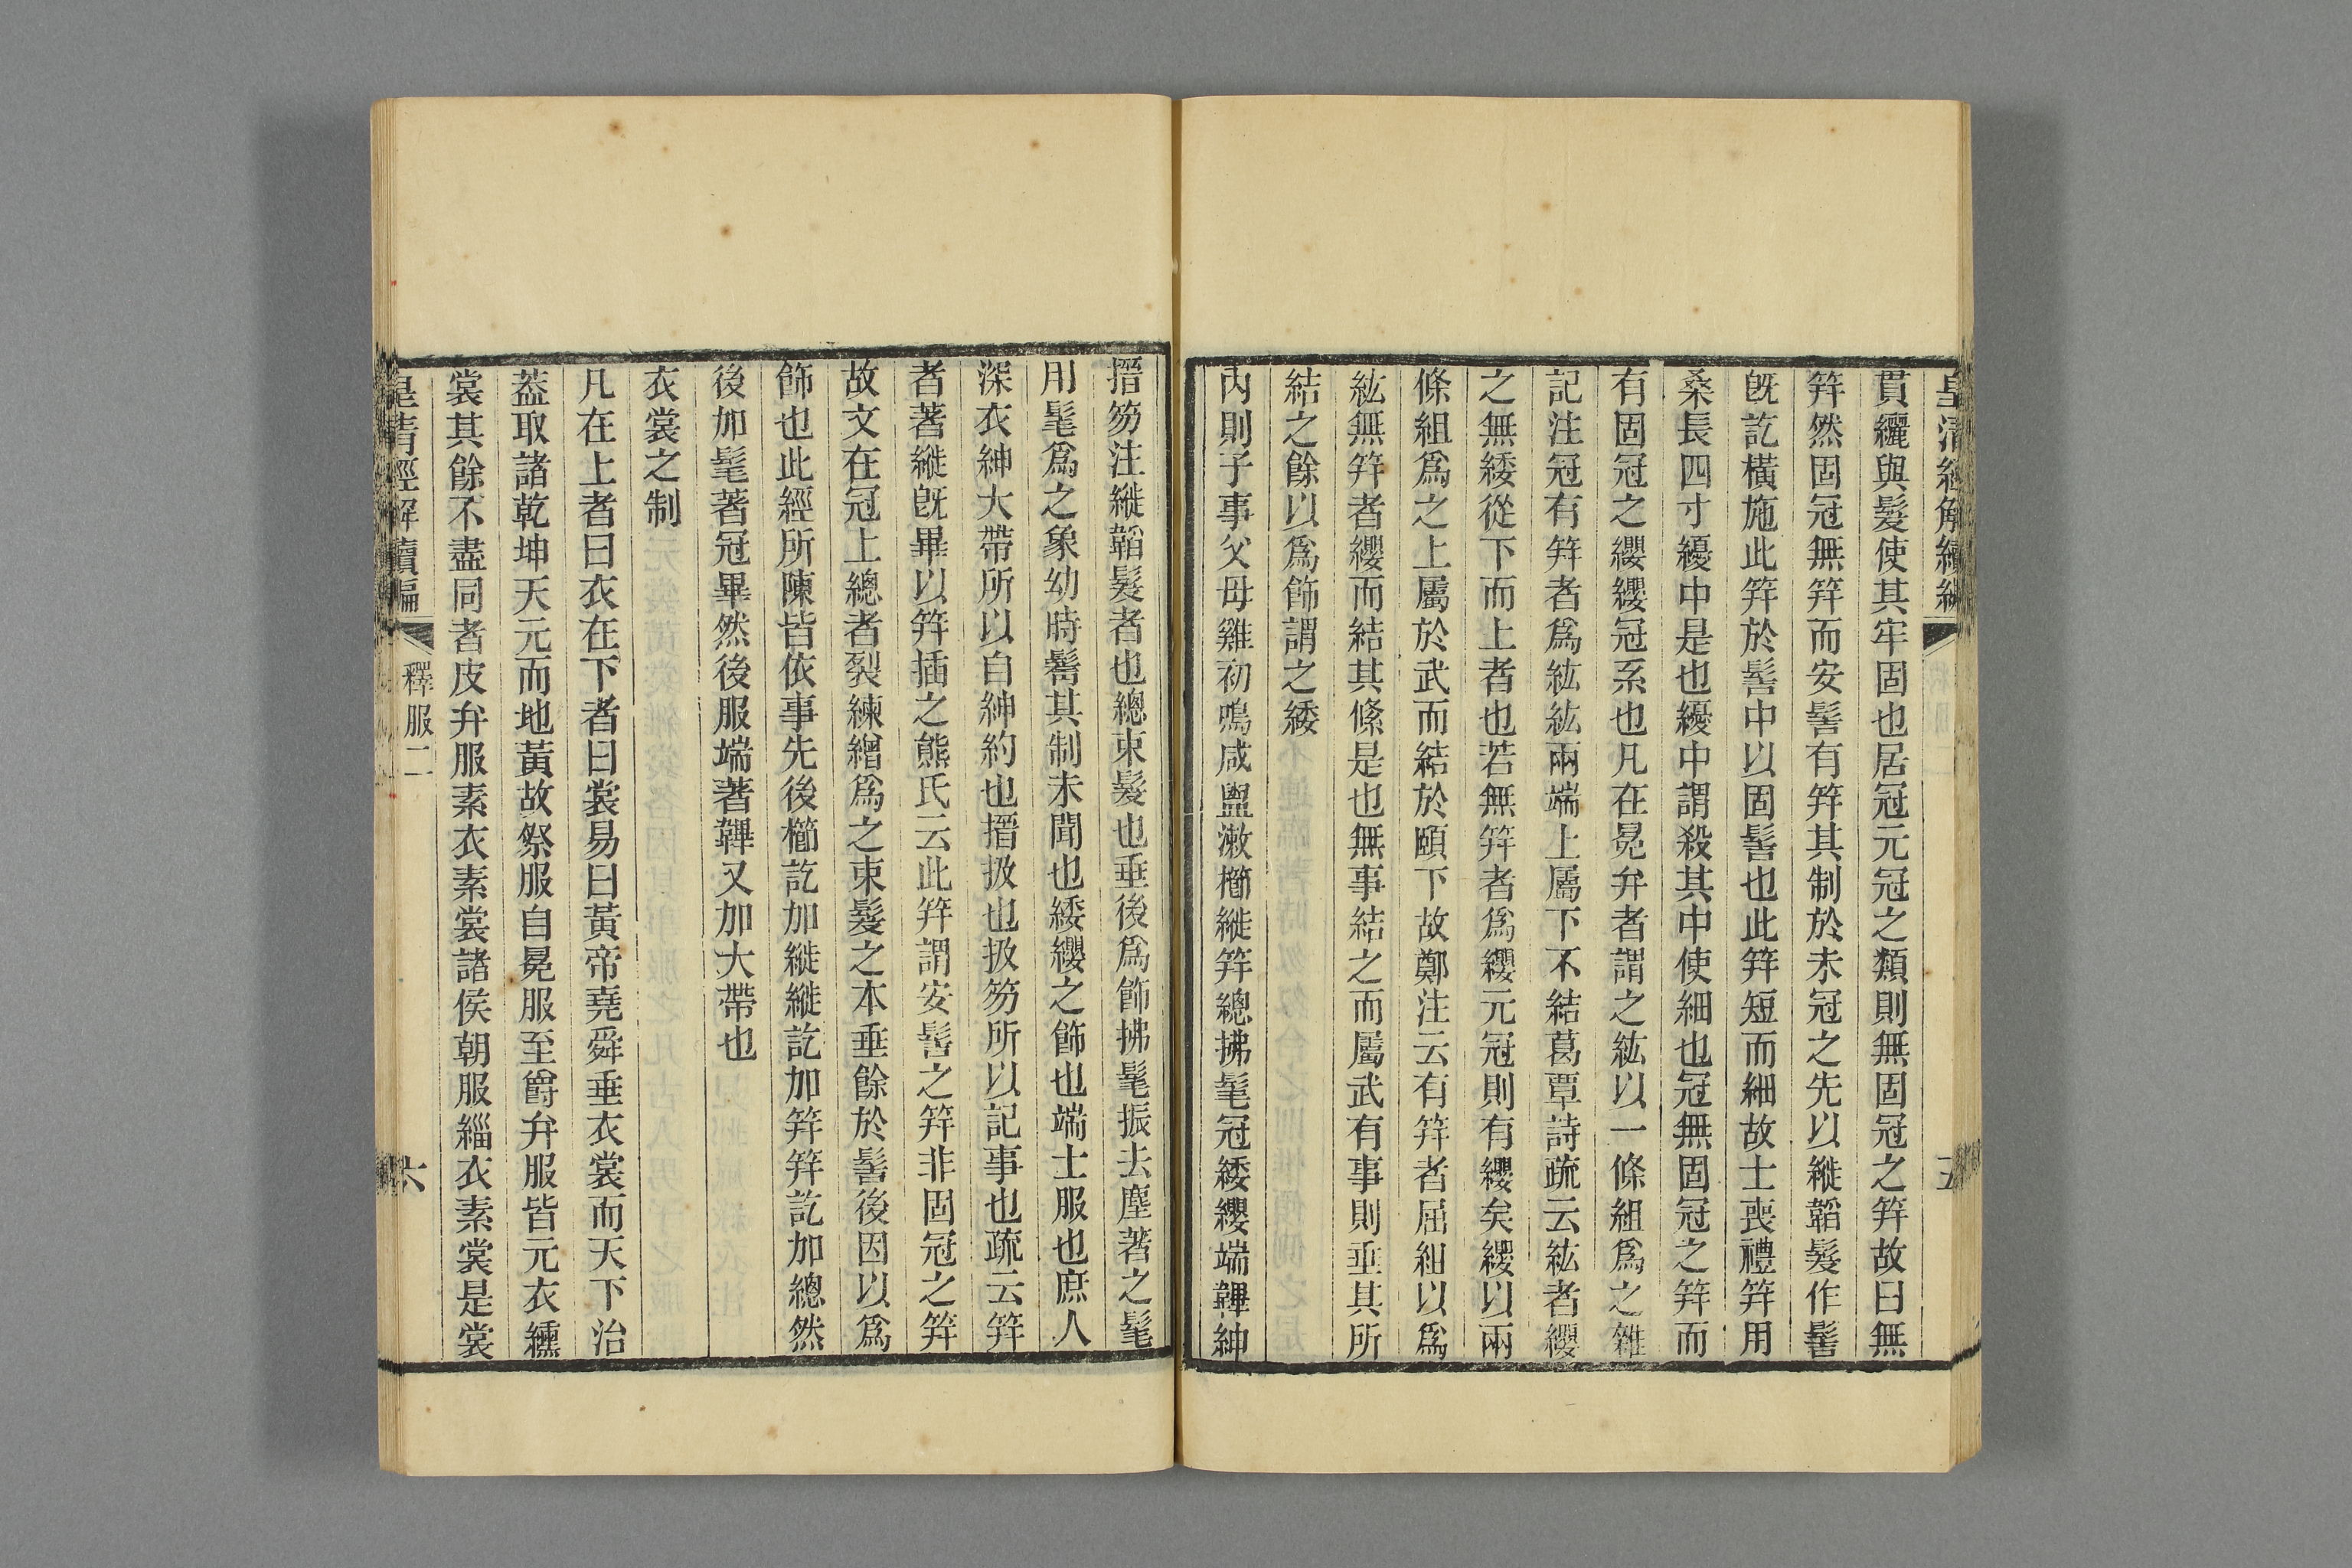 皇清經解續編
五
貫纚與髮使其牢固也居冠元冠之類則無固冠之笄故曰無
笄然固冠無笄而安髻有笄其制於未冠之先以縰韜髮作髻
旣訖橫施此笄於髻中以固髻也此笄短而細故士喪禮笄用
桑長四寸纋中是也纋中謂殺其中使細也冠無固冠之笄而
有固冠之纓纓冠系也凡在冕弁者謂之紘以一條組爲之雜
記注冠有笄者爲紘紘兩端上屬下不結葛覃詩疏云紘者纓
之無緌從下而上者也若無笄者爲纓元冠則有纓矣纓以兩
條組爲之上屬於武而結於頤下故鄭注云有笄者屈組以爲
紘無笄者纓而結其絛是也無事結之而屬武有事則垂其所
結之餘以爲飾謂之緌
內則子事父母雞初鳴咸盥漱櫛縰笄總拂髦冠緌纓端韠紳
搢笏注縰韜髮者也總束髮也垂後爲飾拂髦振去塵著之髦
用髦爲之象幼時鬌其制未聞也緌纓之飾也端士服也庶人
深衣紳大帶所以自紳約也搢扱也扱笏所以記事也疏云笄
者著縰旣畢以笄插之熊氏云此笄謂安髻之笄非固冠之笄
故文在冠上總者裂練繒爲之束髮之本垂餘於髻後因以爲
飾也此經所陳皆依事先後櫛訖加縰縰訖加笄笄訖加總然
後加髦著冠畢然後服端著韠又加大帶也
衣裳之制
凡在上者曰衣在下者曰裳易曰黃帝堯舜垂衣裳而天下治
葢取諸乾坤天元而地黃故祭服自冕服至爵弁服皆元衣纁
裳其餘不盡同者皮弁服素衣素裳諸侯朝服緇衣素裳是裳
皇清經解續編
釋服二
六